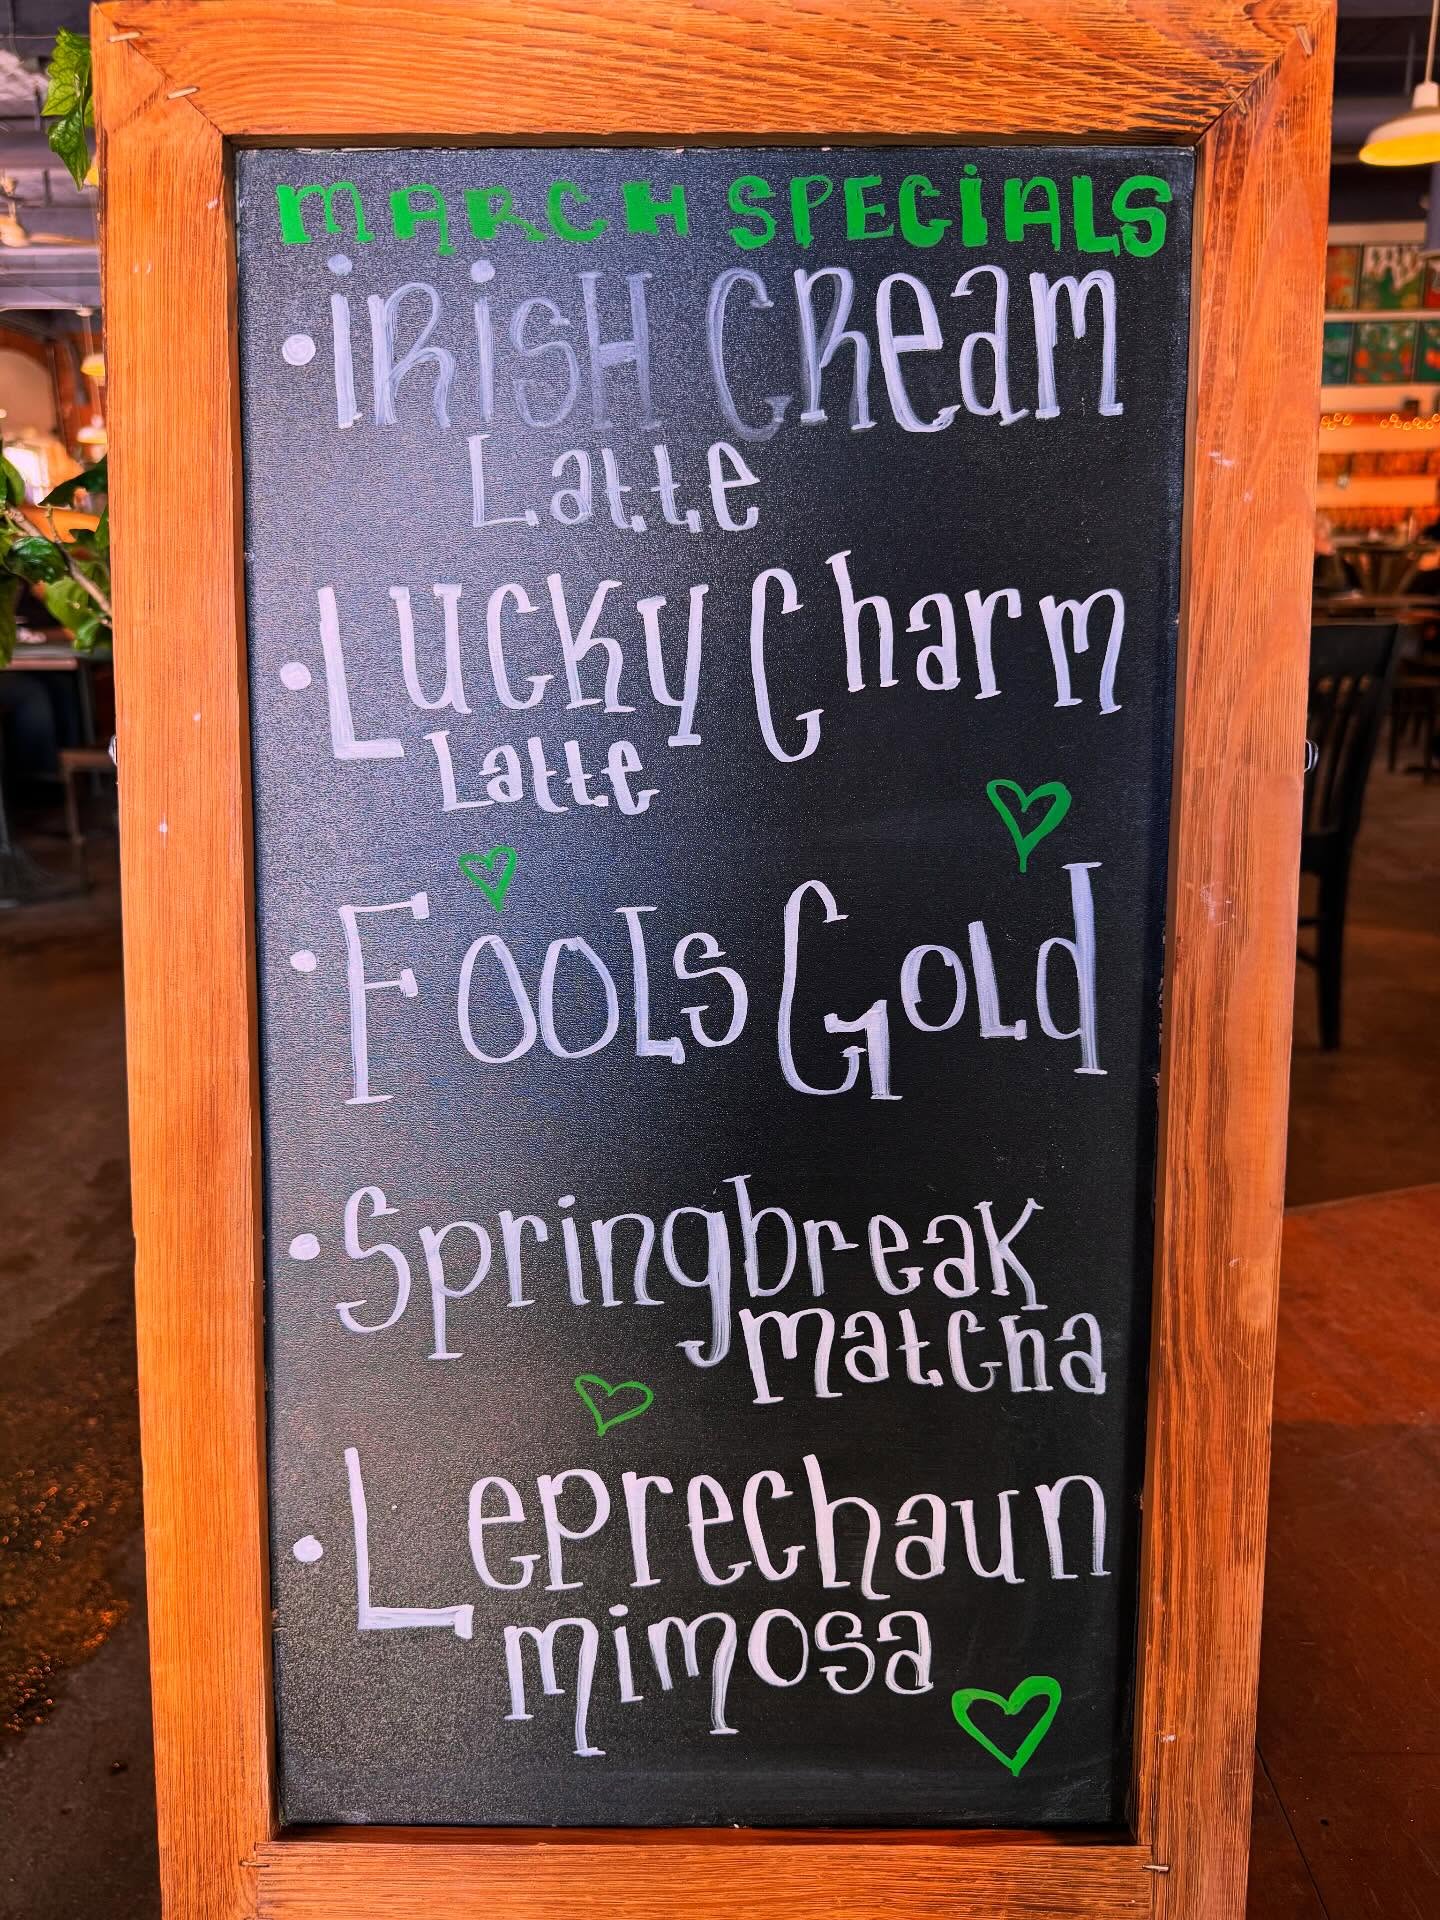 MARCH SPECIALS
• IRISH CReam
Latte
• Lucky Charm
Latte
• Fools Gold
• Springbreak
matcha
• Leprechaun
mimosa